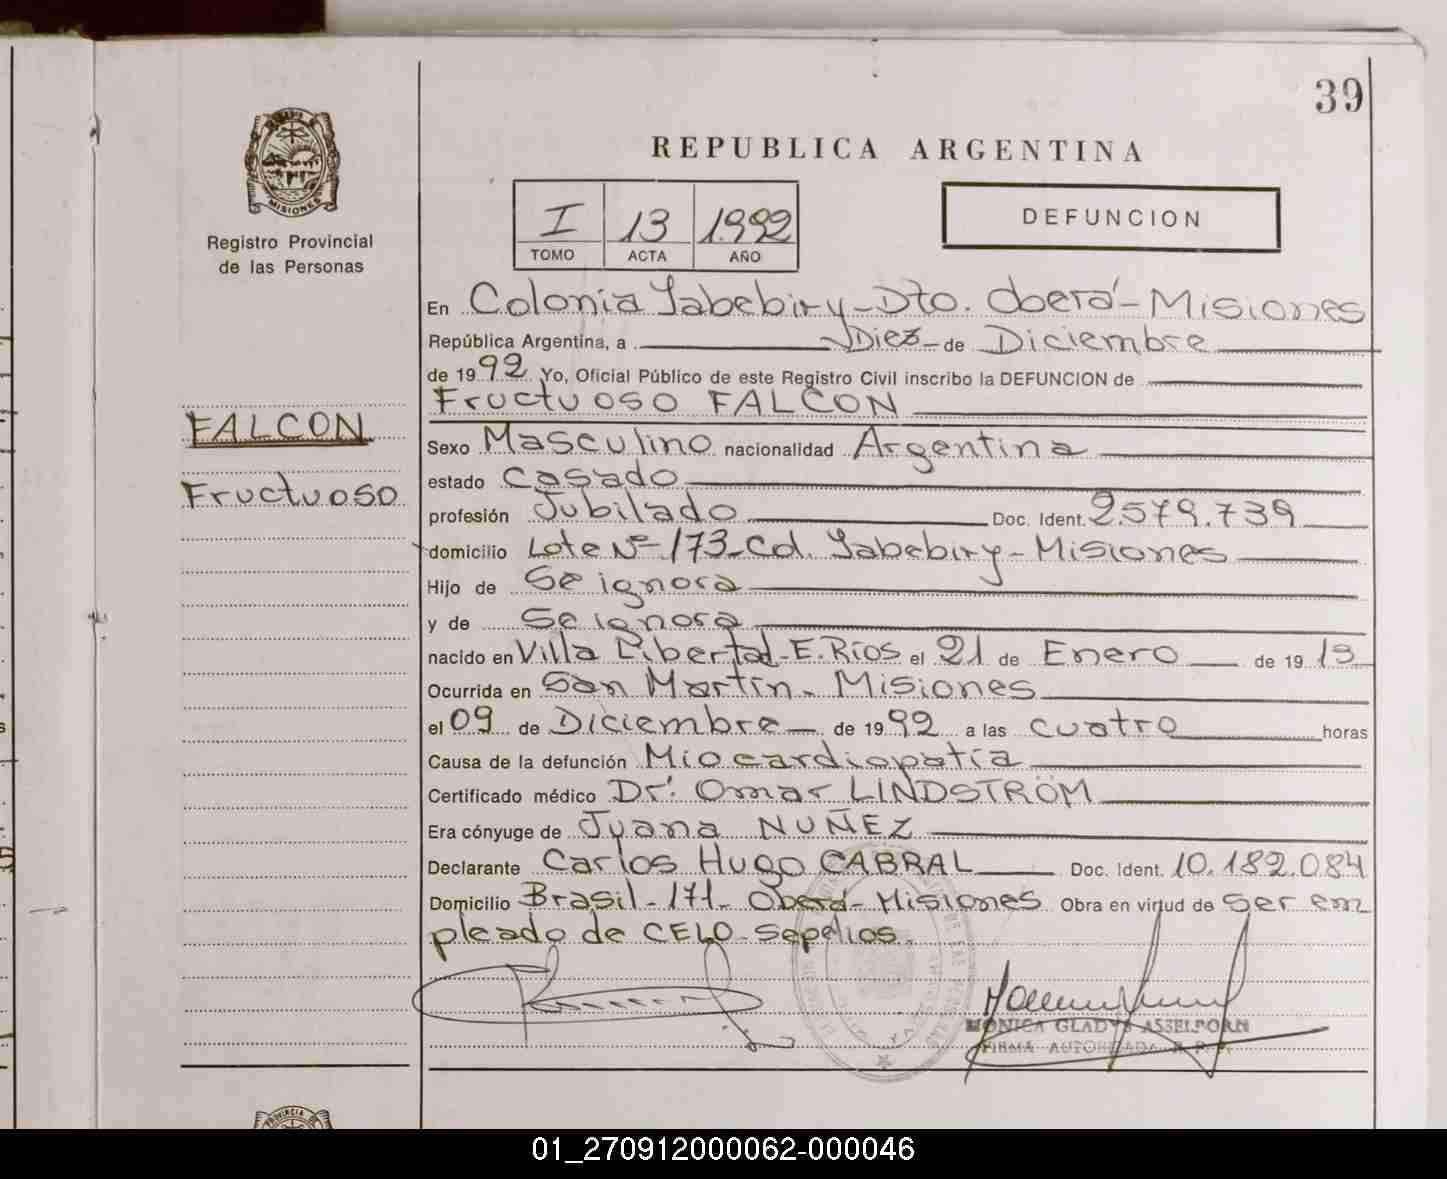 39
REPUBLICA ARGENTINA
MISIONES
Registro Provincial
de las Personas
I 13 1.992
TOMO ACTA AÑO
DEFUNCION
En Colonia Yabebiry - Dto. Oberá - Misiones
República Argentina, a Diez de Diciembre
de 1992 Yo, Oficial Público de este Registro Civil inscribo la DEFUNCION de
Fructuoso FALCON
FALCON
Fructuoso
Sexo Masculino nacionalidad Argentina
estado Casado
profesión Jubilado Doc. Ident. 2.579.739
domicilio Lote Nº 173 - Col. Yabebiry - Misiones
Hijo de Se ignora
y de Se ignora
nacido en Villa Libertad - E. Ríos el 21 de Enero de 1919
Ocurrida en San Martín - Misiones
el 09 de Diciembre de 1992 a las cuatro horas
Causa de la defunción Miocardiopatía
Certificado médico Dr. Omar LINDSTRÖM
Era cónyuge de Juana NUÑEZ
Declarante Carlos Hugo CABRAL Doc. Ident. 10.182.084
Domicilio Brasil - 171 - Oberá - Misiones Obra en virtud de ser em
pleado de CELO - Sepelios.
MONICA GLADYS ASSELBORN
FIRMA AUTORIZADA R. P. P.
PROVINCIA DE
01_270912000062-000046